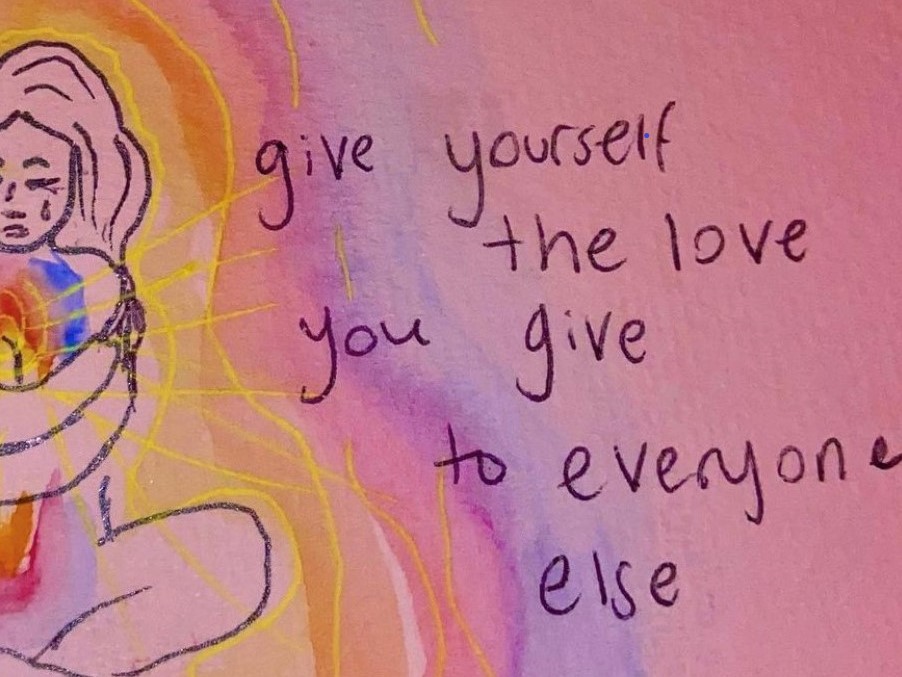 give yourself
the love
you give
to everyone
else